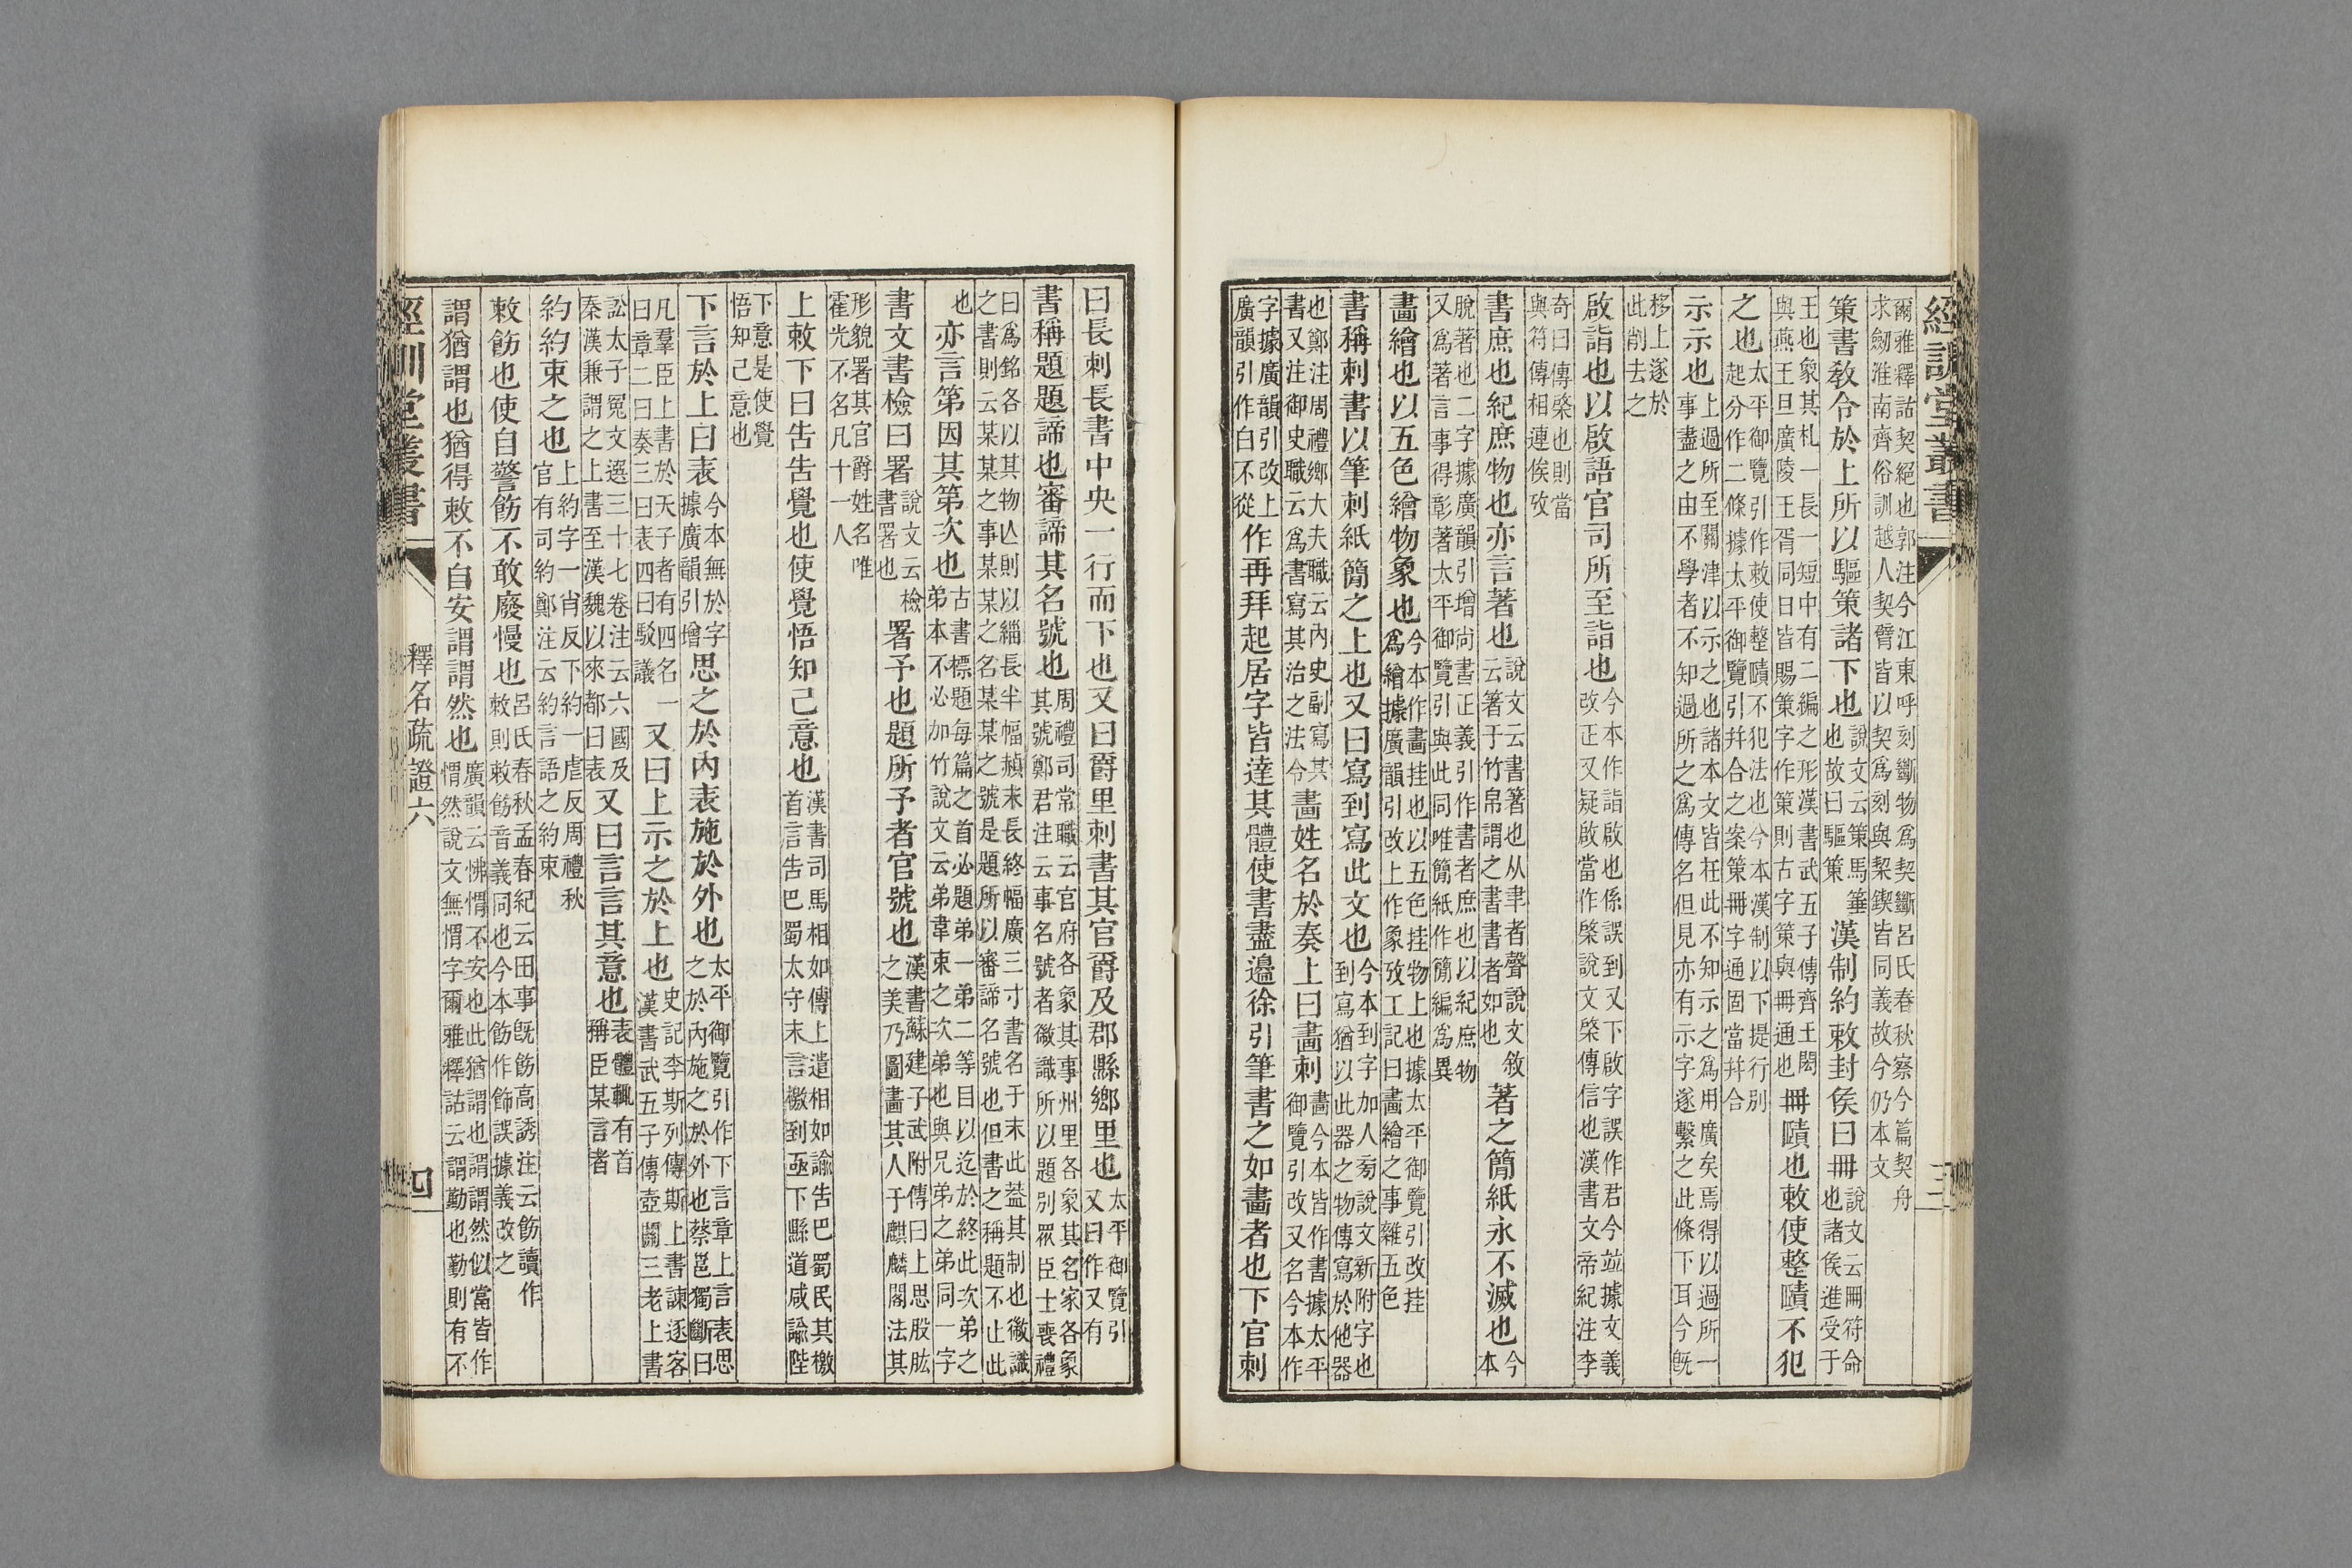 經訓堂叢書
三
爾雅釋詁契絕也郭注今江東呼刻斷物爲契斷呂氏春秋察今篇契舟
求劒淮南齊俗訓越人契臂皆以契爲刻與契鍥皆同義故今仍本文
策書敎令於上所以驅策諸下也說文云策馬箠也故曰驅策漢制約敕封侯曰冊說文云冊符命也諸侯進受于
王也象其札一長一短中有二編之形漢書武五子傳齊王閎與燕王旦廣陵王胥同日皆賜策字作策則古字策與冊通也冊賾也敕使整賾不犯
之也太平御覽引作敕使整賾不犯法也今本漢制以下提行別起分作二條據太平御覽引幷合之案策冊字通固當幷合
示示也上過所至關津以示之也諸本文皆在此不知示之爲用廣矣焉得以過所一事盡之由不學者不知過所之爲傳名但見亦有示字遂繫之此條下耳今旣
移上逐於此削去之
啟詣也以啟語官司所至詣也今本作詣啟也係誤到又下啟字誤作君今竝據文義改正又疑啟當作棨說文棨傳信也漢書文帝紀注李
奇曰傳棨也則當與符傳相連俟攷
書庶也紀庶物也亦言著也說文云書箸也从聿者聲說文敘云箸于竹帛謂之書書者如也著之簡紙永不滅也今本
脫著也二字據廣韻引增尙書正義引作書者庶也以紀庶物又爲著言事得彰著太平御覽引與此同唯簡紙作簡編爲異
畵繪也以五色繪物象也今本作畵挂也以五色挂物上也據太平御覽引改挂爲繪據廣韻引改上作象攷工記曰畵繪之事雜五色
書稱刺書以筆刺紙簡之上也又曰寫到寫此文也今本到字加人旁說文新附字也到寫猶以此器之物傳寫於他器
也鄭注周禮鄕大夫職云內史副寫其書又注御史職云爲書寫其治之法令畵姓名於奏上曰畵刺畵今本皆作書據太平御覽引改又名今本作
字據廣韻引改上廣韻引作白不從作再拜起居字皆達其體使書盡邉徐引筆書之如畵者也下官刺
曰長刺長書中央一行而下也又曰爵里刺書其官爵及郡縣鄕里也太平御覽引又曰作又有
書稱題題諦也審諦其名號也周禮司常職云官府各象其事州里各象其名家各象其號鄭君注云事名號者徽識所以題別眾臣士喪禮
曰爲銘各以其物亾則以緇長半幅赬末長終幅廣三寸書名于末此葢其制也徽識之書則云某某之事某某之名某某之號是題所以審諦名號也但書之稱題不止此
也亦言第因其第次也古書標題每篇之首必題弟一弟二等目以迄於終此次弟之弟本不必加竹說文云弟韋束之次弟也與兄弟之弟同一字
書文書檢曰署說文云檢書署也署予也題所予者官號也漢書蘇建子武附傳曰上思股肱之美乃圖畵其人于麒麟閣法其
形貌署其官爵姓名唯霍光不名凡十一人
上敕下曰吿吿覺也使覺悟知己意也漢書司馬相如傳上遣相如諭吿巴蜀民其檄首言吿巴蜀太守末言檄到亟下縣道咸諭陛
下意是使覺悟知己意也
下言於上曰表今本無於字據廣韻引增思之於內表施於外也太平御覽引作下言章上言表思之於內施之於外也蔡邕獨斷曰
凡羣臣上書於天子者有四名一曰章二曰奏三曰表四曰駁議又曰上示之於上也史記李斯列傳斯上書諫逐客漢書武五子傳壺關三老上書
訟太子冤文選三十七卷注云六國及秦漢兼謂之上書至漢魏以來都曰表又曰言言其意也表體輒有首稱臣某言者
約約束之也上約字一肖反下約一虐反周禮秋官有司約鄭注云約言語之約束
敕飭也使自警飭不敢廢慢也呂氏春秋孟春紀云田事旣飭高誘注云飭讀作敕則敕飭音義同也今本飭作飾誤據義改之
謂猶謂也猶得敕不自安謂謂然也廣韻云怫㥜不安也此猶謂也謂謂然似當皆作㥜然說文無㥜字爾雅釋詁云謂勤也勤則有不
經訓堂叢書
釋名疏證六
四